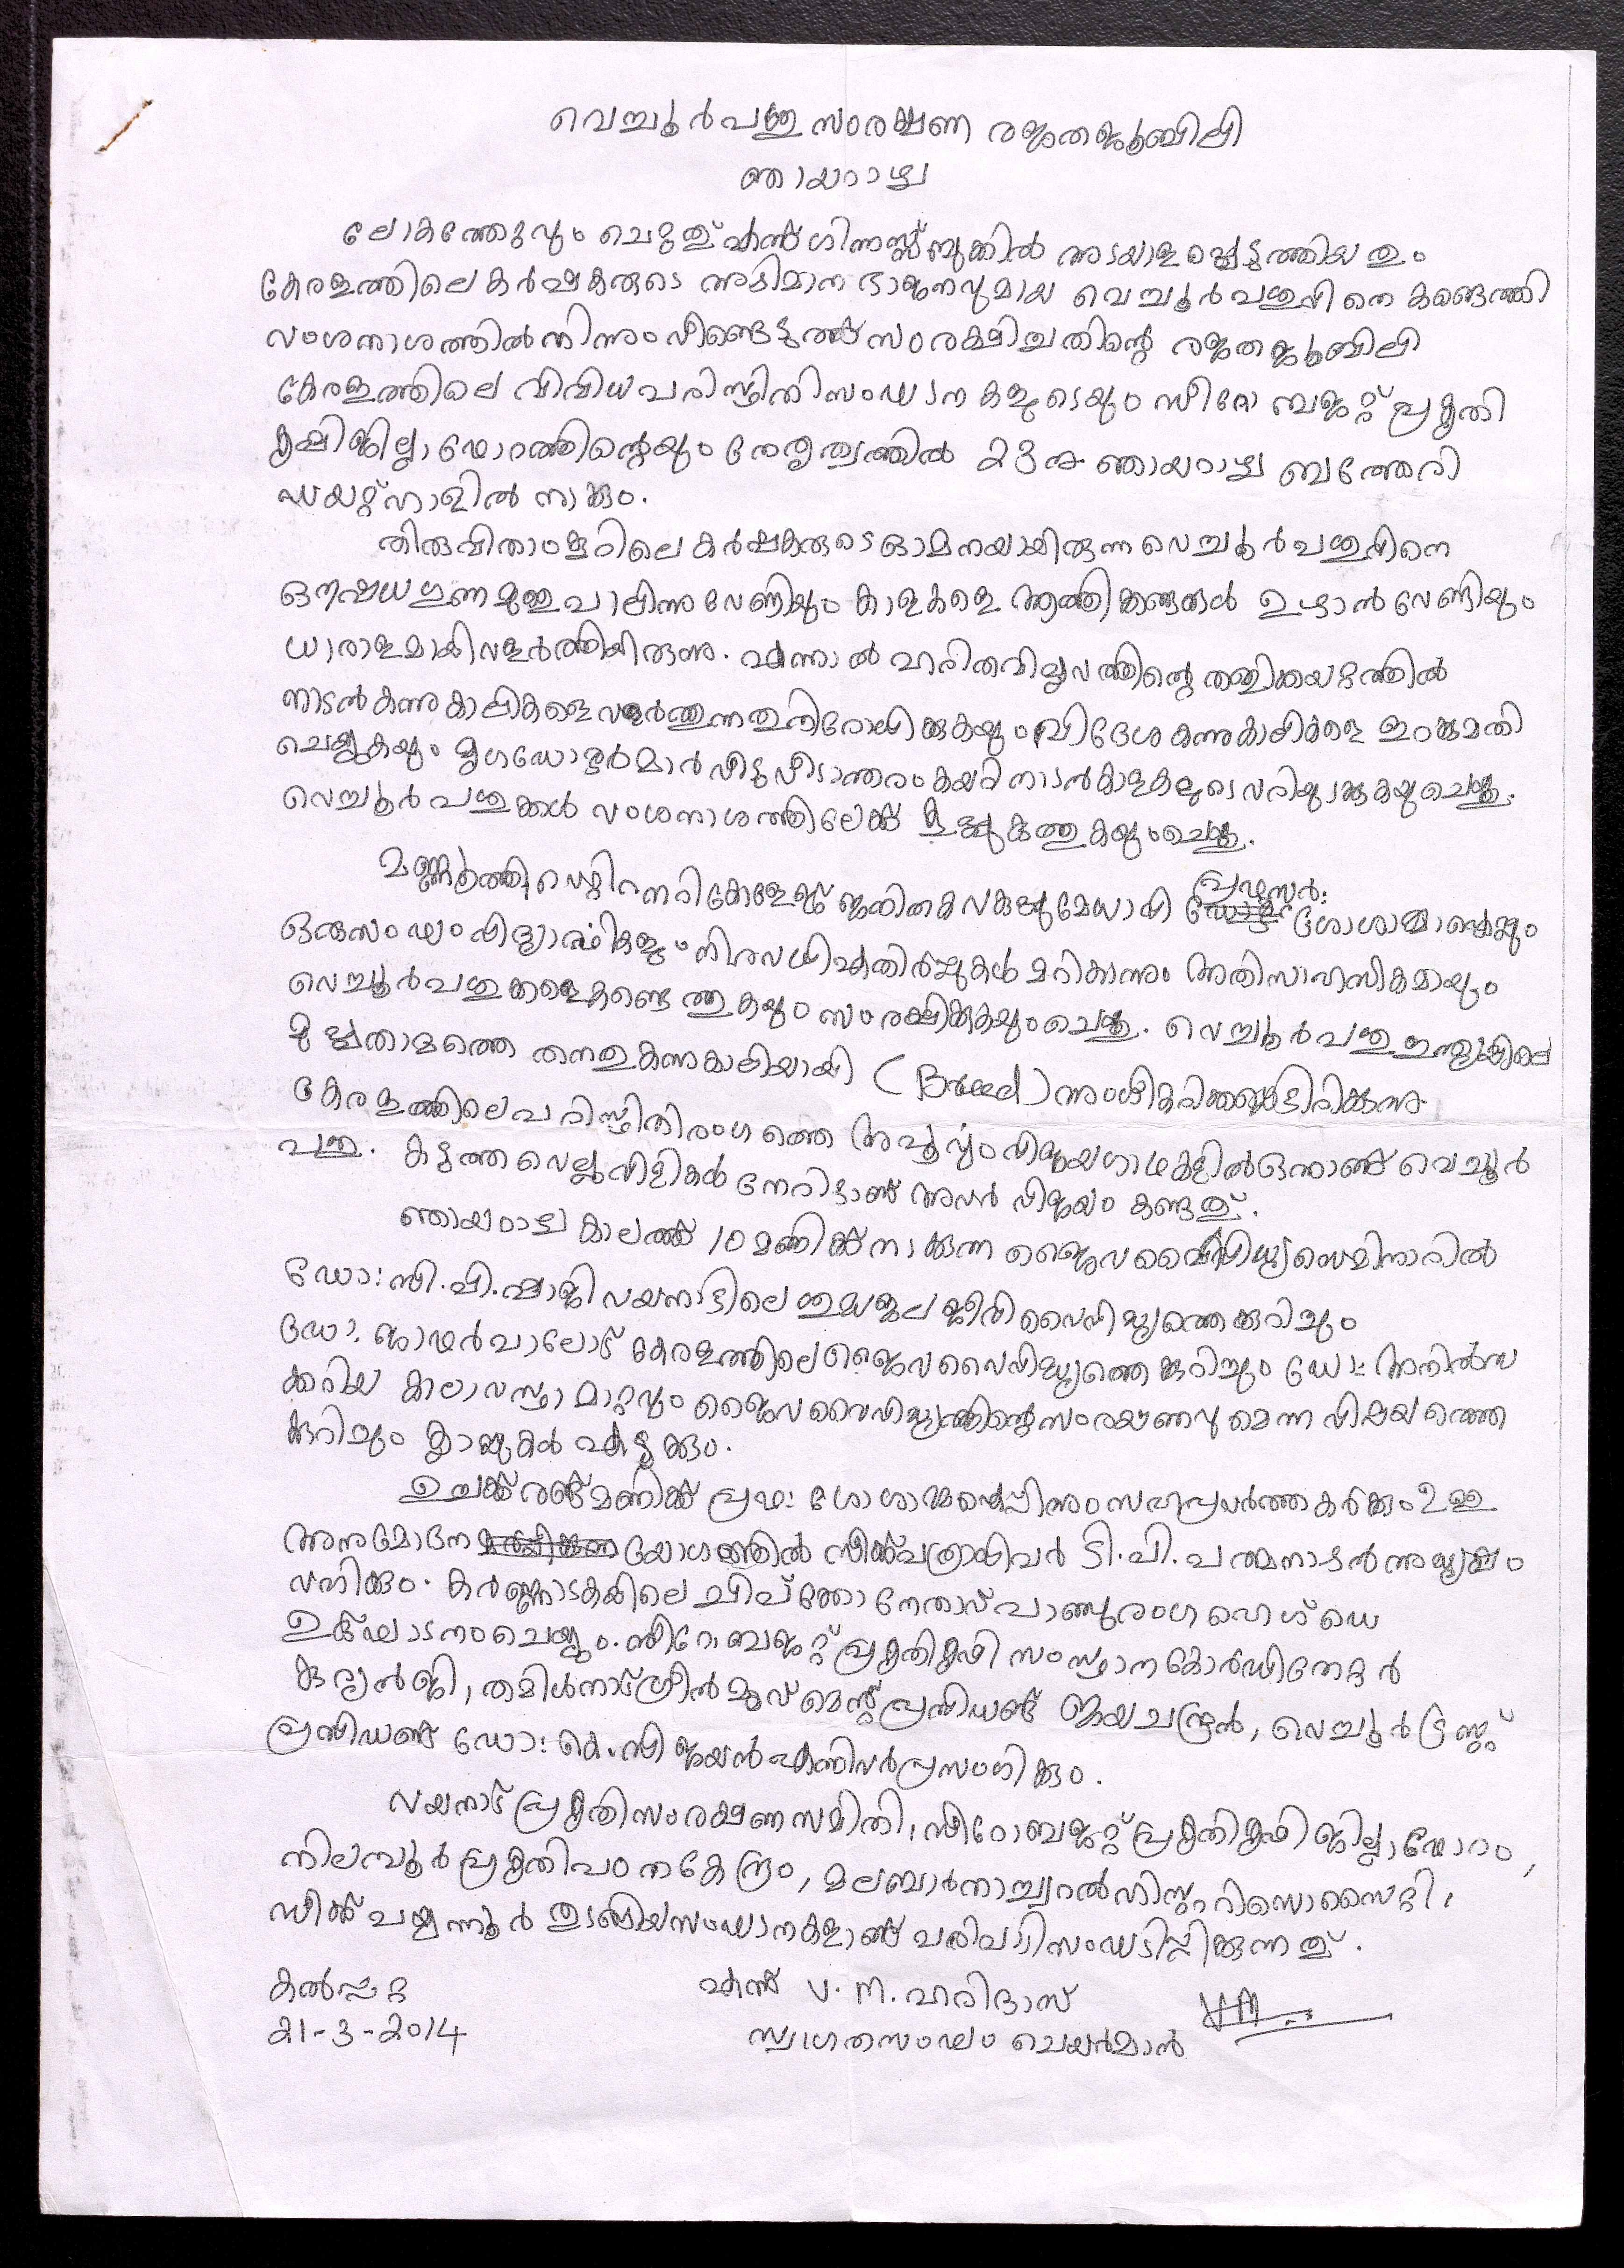 വെച്ചൂർപശു സംരക്ഷണ രജതജൂബിലി
ഞായറാഴ്ച
ലോകത്തേറ്റവും ചെറുത് എന്ന് ഗിന്നസ്സ് ബുക്കിൽ അടയാളപ്പെടുത്തിയതും
കേരളത്തിലെ കർഷകരുടെ അഭിമാന ഭാജനവുമായ വെച്ചൂർപശുവിനെ കണ്ടെത്തി
വംശനാശത്തിൽ നിന്നും വീണ്ടെടുത്ത് സംരക്ഷിച്ചതിന്റെ രജതജൂബിലി
കേരളത്തിലെ വിവിധ പരിസ്ഥിതി സംഘടനകളുടെയും സീറോ ബജറ്റ് പ്രകൃതി
കൃഷി ജില്ലാ ഫോറത്തിന്റെയും നേതൃത്വത്തിൽ 23ന് ഞായറാഴ്ച ബത്തേരി
ഡയറ്റ് ഹാളിൽ നടക്കും.
തിരുവിതാംകൂറിലെ കർഷകരുടെ ഓമനയായിരുന്ന വെച്ചൂർ പശുവിനെ
ഔഷധ ഗുണമുള്ള പാലിനു വേണ്ടിയും കാളകളെ ഉഴാൻ വേണ്ടിയും
ധാരാളമായി വളർത്തിയിരുന്നു. എന്നാൽ ഹരിതവിപ്ലവത്തിന്റെ തള്ളിക്കയറ്റത്തിൽ
നാടൻ കന്നുകാലികളെ വളർത്തുന്നതു നിരോധിക്കുകയും വിദേശ കന്നുകാലികളെ ഇറക്കുമതി
ചെയ്യുകയും മൃഗഡോക്ടർമാർ വീടുവീടാന്തരം കയറി നാടൻ കാളകളുടെ വരിയുടക്കുകയും ചെയ്തു.
വെച്ചൂർ പശുക്കൾ വംശനാശത്തിലേക്ക് കുത്തുകയും ചെയ്തു.
മണ്ണുത്തി വെറ്ററിനറി കോളേജ് ജനിതക വകുപ്പു മേധാവി പ്രഫസർ: ശോശാമ്മ ഐപ്പും
ഒരുസംഘം വിദ്യാർഥികളും നിരവധി എതിർപ്പുകൾ മറികടന്നും അതിസാഹസികമായും
വെച്ചൂർ പശുക്കളെ കണ്ടെത്തുകയും സംരക്ഷിക്കുകയും ചെയ്തു. വെച്ചൂർ പശു ഇന്ത്യയിലെ
മുപ്പതാമത്തെ തനതു കന്നുകാലിയായി (Breed) അംഗീകരിക്കപ്പെട്ടിരിക്കുന്നു.
കേരളത്തിലെ പരിസ്ഥിതി രംഗത്തെ അപൂർവ്വം വിജയഗാഥകളിൽ ഒന്നാണ് വെച്ചൂർ
പശു. കടുത്ത വെല്ലുവിളികൾ നേരിട്ടാണ് അവർ വിജയം കണ്ടത്.
ഞായറാഴ്ച കാലത്ത് 10 മണിക്ക് നടക്കുന്ന ജൈവ വൈവിധ്യ സെമിനാറിൽ
ഡോ: സി.പി.ഷാജി വയനാട്ടിലെ ശുദ്ധജല ജീവി വൈവിധ്യത്തെക്കുറിച്ചും
ഡോ. ജാഫർ പാലോട് കേരളത്തിലെ ജൈവ വൈവിധ്യത്തെക്കുറിച്ചും ഡോ: അനിൽ സ
ക്കറിയ കാലാവസ്ഥാ മാറ്റവും ജൈവ വൈവിധ്യത്തിന്റെ സംരക്ഷണവുമെന്ന വിഷയത്തെ
ക്കുറിച്ചും ക്ലാസ്സുകൾ എടുക്കും.
ഉച്ചക്ക് രണ്ട് മണിക്ക് പ്രഫ: ശോശാമ്മ ഐപ്പിനും സഹപ്രവർത്തകർക്കും ഉള്ള
അനുമോദന യോഗത്തിൽ സീക്ക് പത്രാധിപർ ടി.പി. പത്മനാഭൻ അധ്യക്ഷം
വഹിക്കും. കർണ്ണാടകയിലെ ചിപ്കോ നേതാവ് പാണ്ഡുരംഗ ഹെഗ്ഡെ
ഉദ്ഘാടനം ചെയ്യും. സീറോ ബജറ്റ് പ്രകൃതി കൃഷി സംസ്ഥാന കോർഡിനേറ്റർ
കുര്യൻജി, തമിൾനാട് ഗ്രീൻ മൂവ്മെന്റ് പ്രസിഡണ്ട് ജയചന്ദ്രൻ, വെച്ചൂർ ട്രസ്റ്റ്
പ്രസിഡണ്ട് ഡോ: കെ.സി ജയൻ എന്നിവർ പ്രസംഗിക്കും.
വയനാട് പ്രകൃതി സംരക്ഷണ സമിതി, സീറോ ബജറ്റ് പ്രകൃതി കൃഷി ജില്ലാ ഫോറം,
നിലമ്പൂർ പ്രകൃതി പഠന കേന്ദ്രം, മലബാർ നാച്ച്വറൽ ഹിസ്റ്ററി സൊസൈറ്റി,
സീക്ക് പയ്യന്നൂർ തുടങ്ങിയ സംഘടനകളാണ് പരിപാടി സംഘടിപ്പിക്കുന്നത്.
കൽപ്പറ്റ എന്ന് V. M. ഹരിദാസ്
21-3-2014 സ്വാഗതസംഘം ചെയർമാൻ